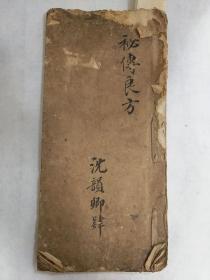 秘傳良方
沈韻卿肄